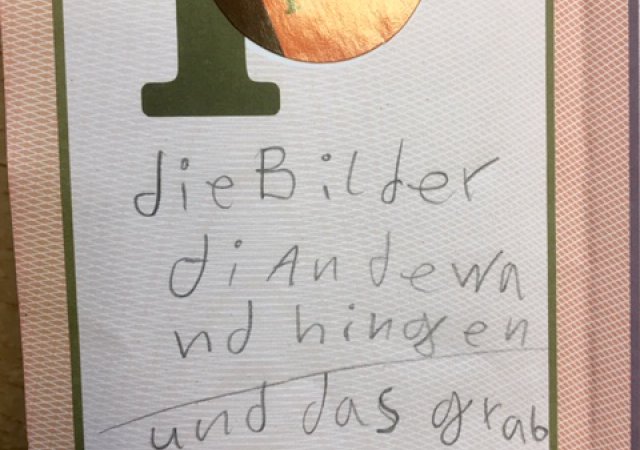 dieBilder
di An dewa
nd hingen
und das grab